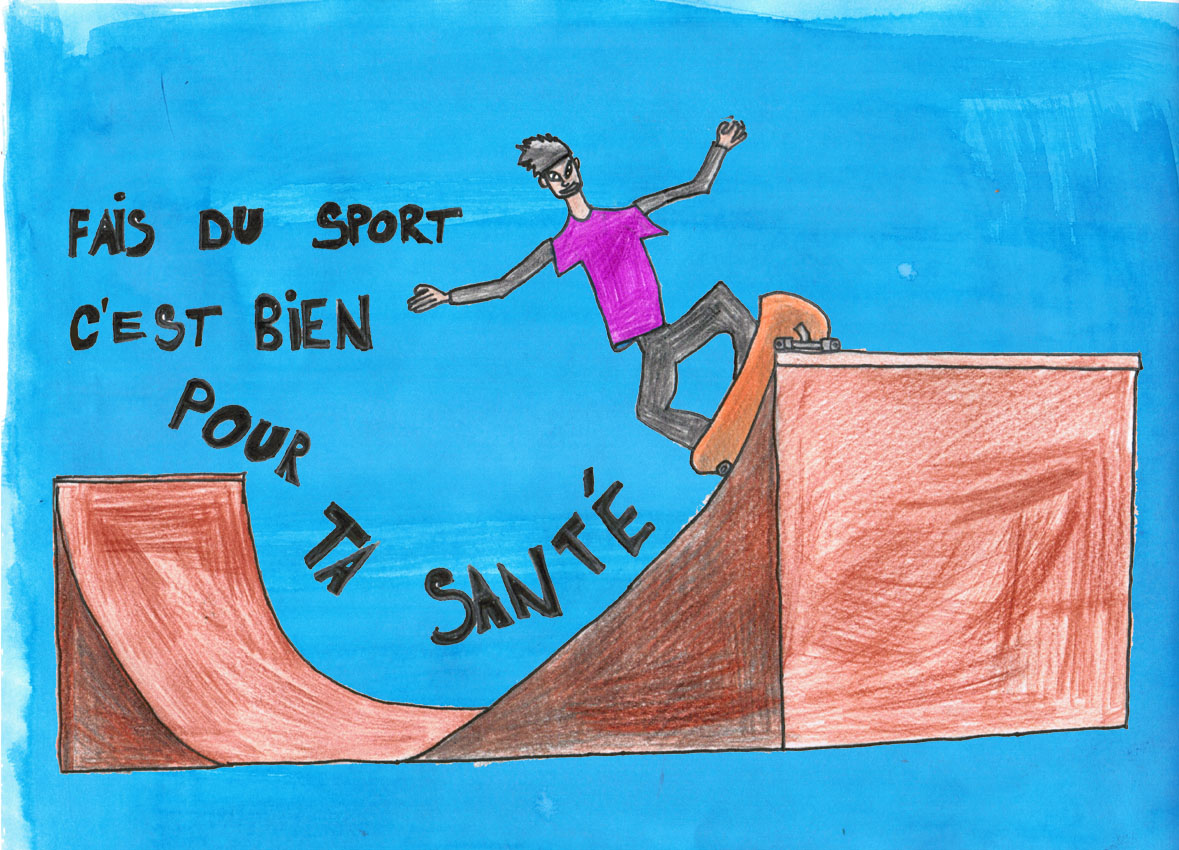 FAiS DU SPORT
C'EST BiEN
POUR TA SANTÉ